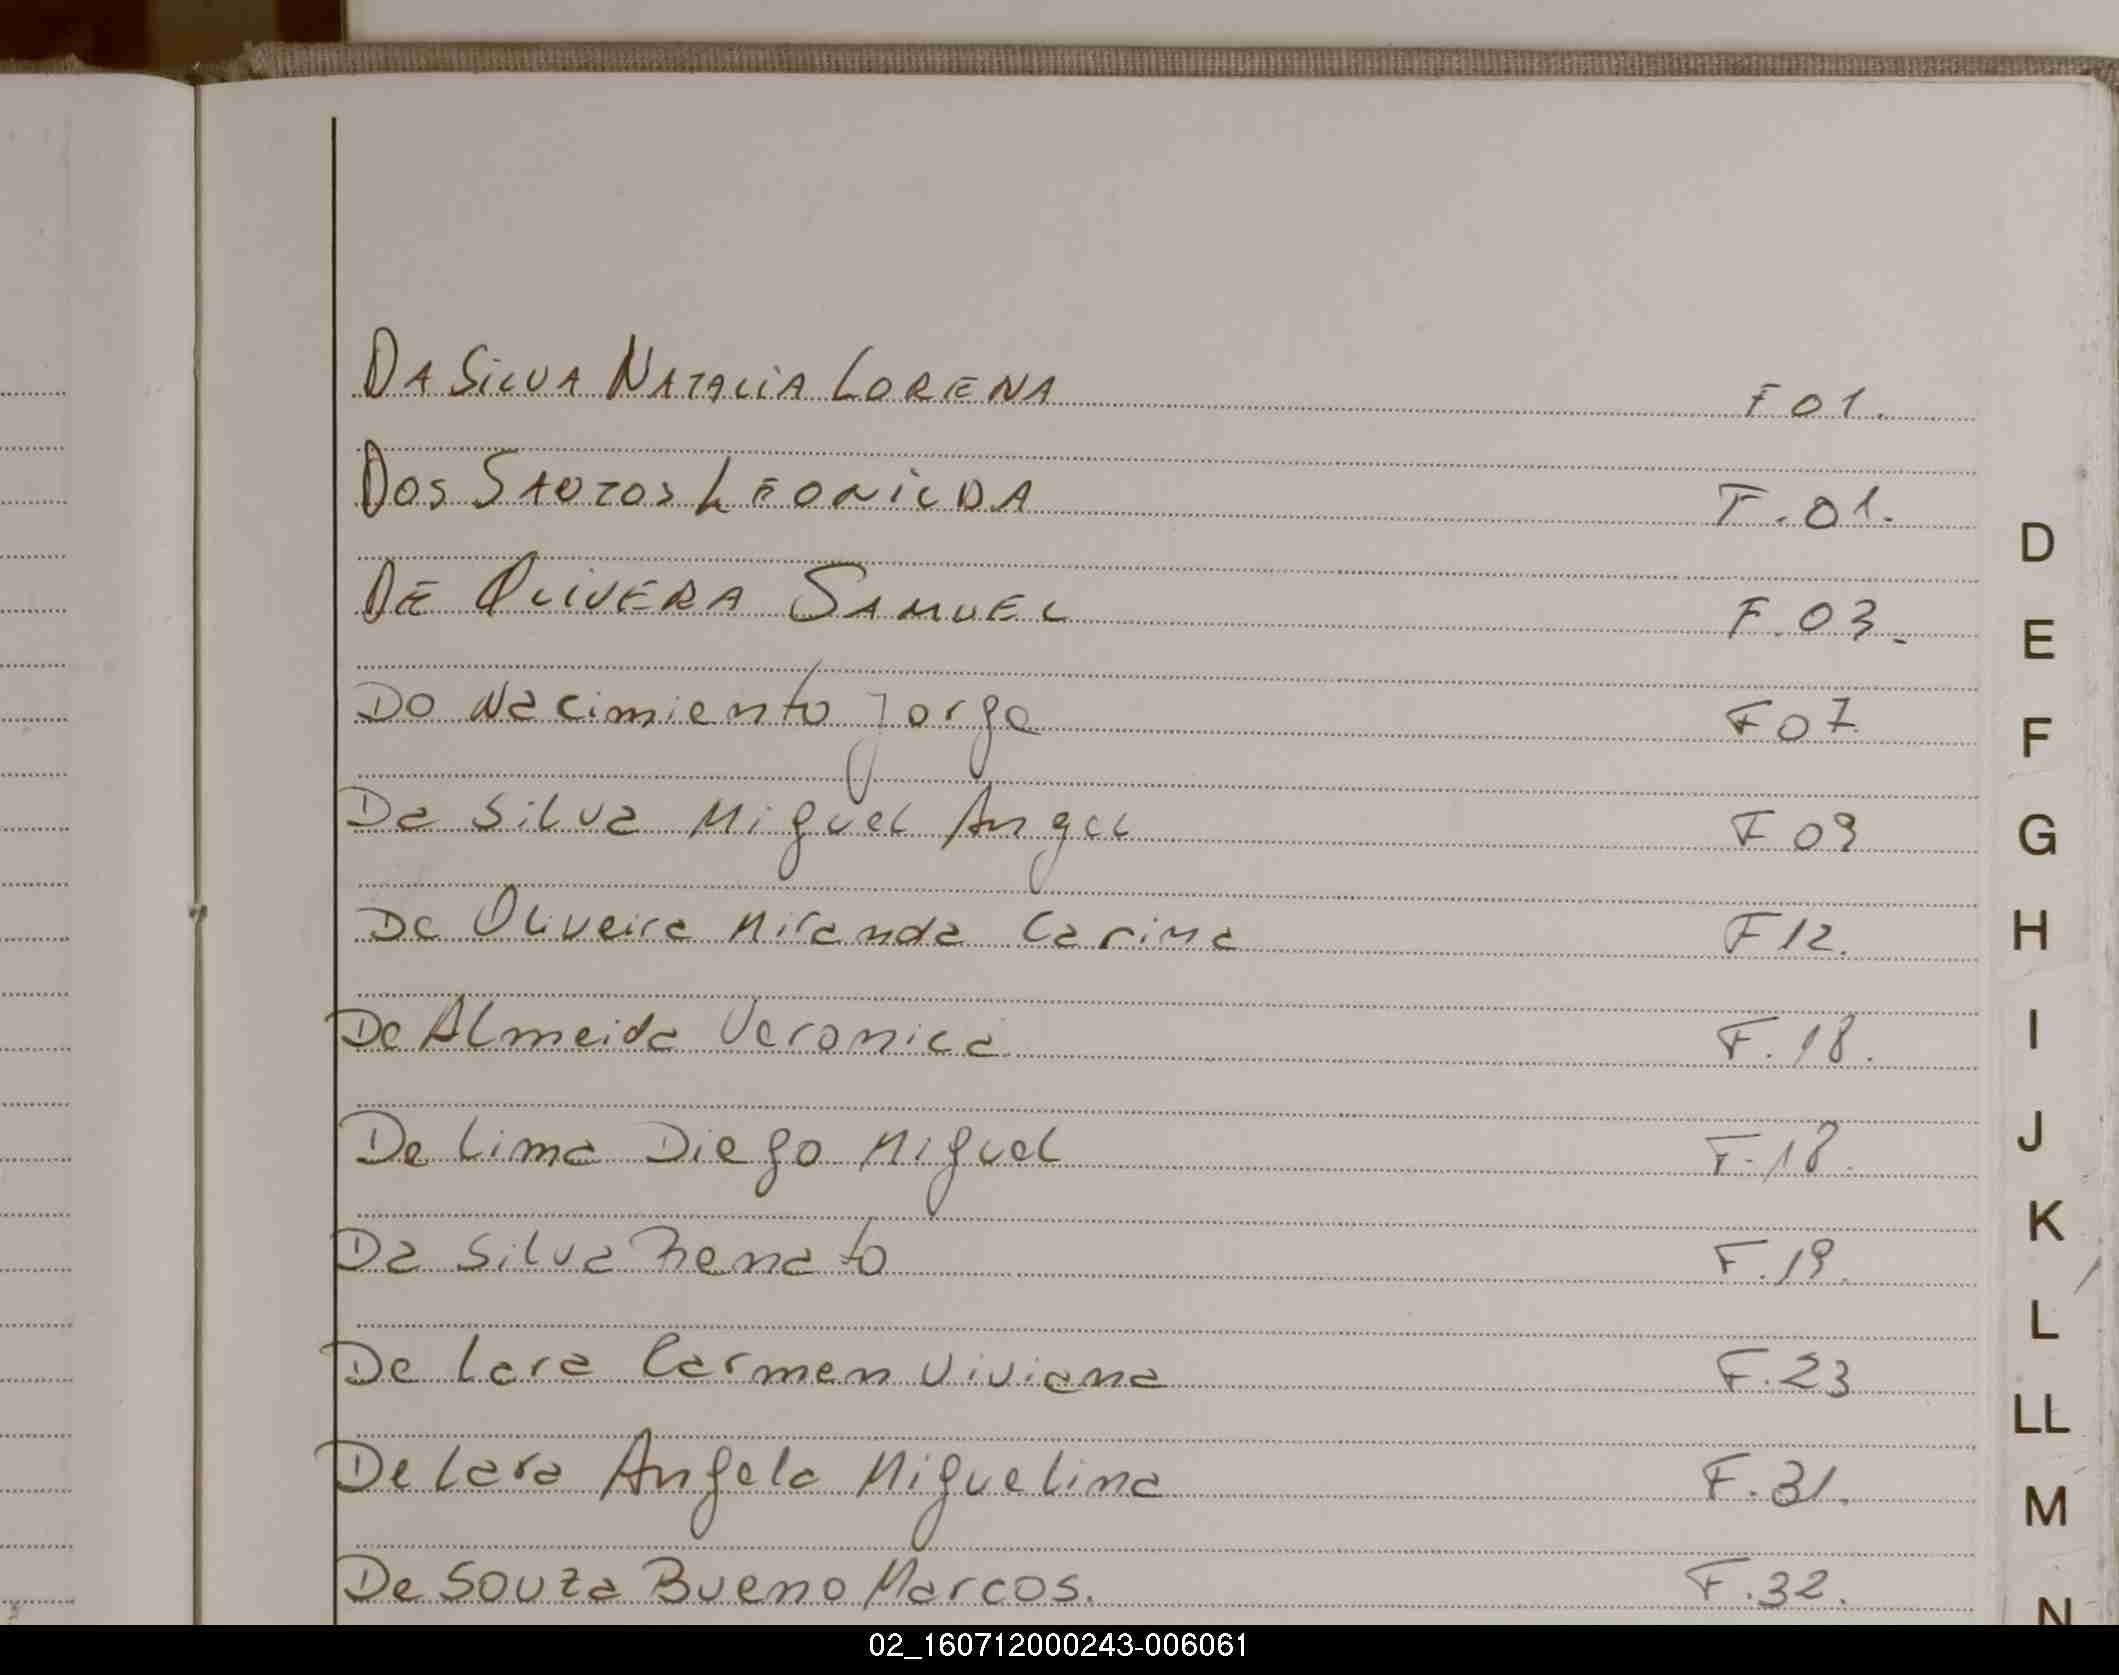 DA SILVA NATALIA LORENA F 01.
DOS SANTOS LEONILDA F.01.
DE OLIVERA SAMUEL F.03.
Do Nacimiento Jorge F 07
Da Silva Miguel Angel F 09
De Oliveira Miranda Carina F 12.
De Almeida Veronica F.18.
De Lima Diego Miguel F.18.
Da Silva Renato F.19.
De Lara Carmen Viviana F.23
De Lara Angela Miguelina F.31.
De Souza Bueno Marcos. F.32.
D
E
F
G
H
I
J
K
L
LL
M
N
02_160712000243-006061